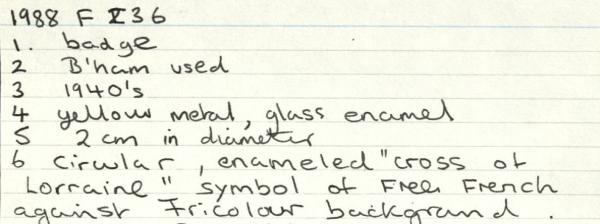 1988 F 236
1. badge
2 B'ham used
3 1940's
4 yellow metal, glass enamel
5 2 cm in diameter
6 circular, enameled "cross of
Lorraine" symbol of Free French
against Tricolour background.